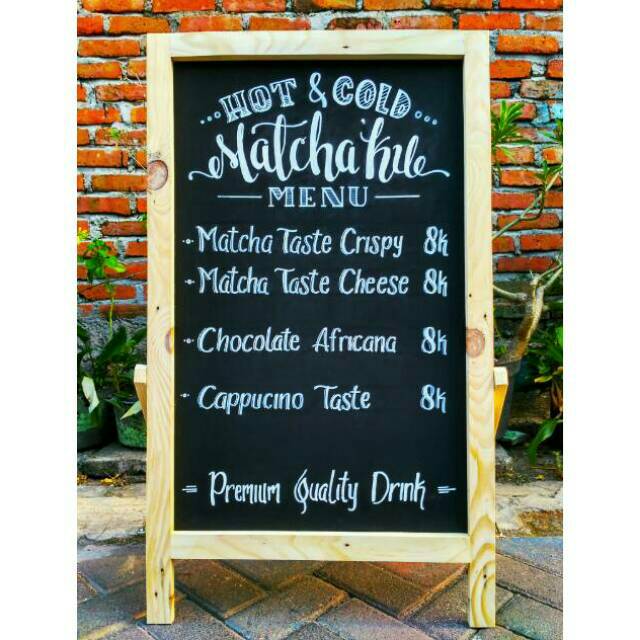 ...HOT & COLD...
Matcha'kule
MENU
Matcha Taste Crispy 8k
Matcha Taste Cheese 8k
Chocolate Africana 8k
Cappucino Taste 8k
= Premium Quality Drink =